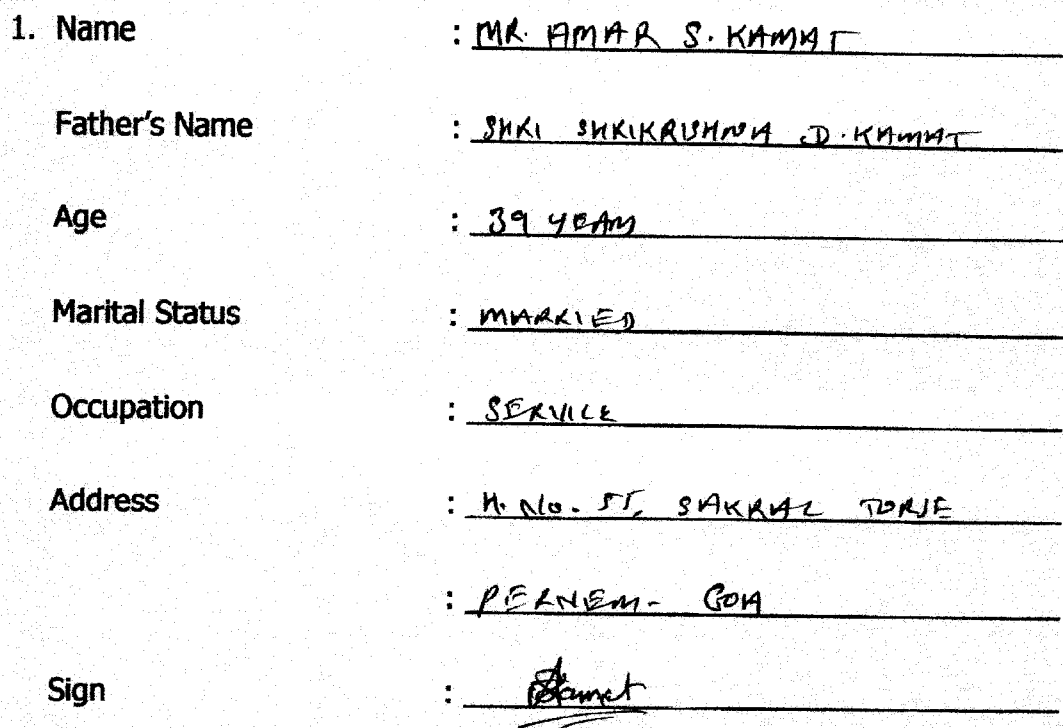 1. Name : MR. AMAR S. KAMAT
Father's Name : SHRI SHRIKRISHNA D. KAMAT
Age : 39 YEARS
Marital Status : MARRIED
Occupation : SERVICE
Address : H. No. 55, SAKRAL TORSE
: PERNEM - GOA
Sign : Kamat